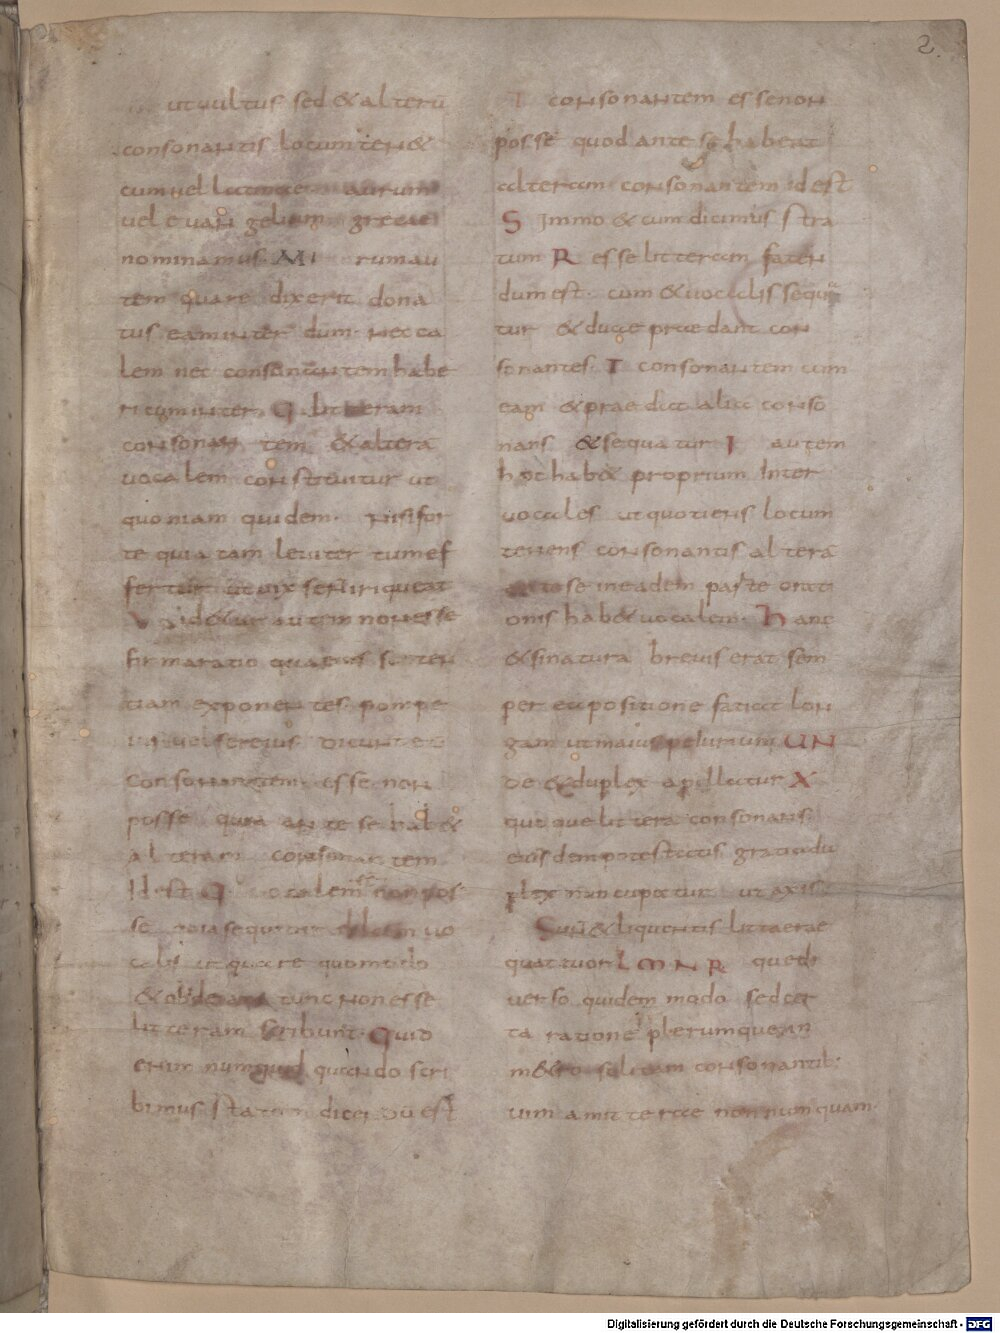 2.
ut uultus sed & alterū
consonantis locum ten&
cum uel
uel euangelium
nominamus. Mi rum au
tem quare dixerit dona
tus eam inter dum. nec ca
lem nec consonantem habe
ri cum inter Q. litteram
consonan tem & alterā
uocalem constituitur ut
quoniam quidem. nisi for
te quia tam leuiter tum ef
fertur ut uix sentiri queat
autem non esse
firma ratio
tiam exponentes. pompe
ius uel sereius. dicunt
consonantem. esse non
posse quia ante se hab&
alteram consonantem
Id est Q. ocalem non pos
se quia sequitur uo
calis ut quare quomodo
tunc non esse
litteram scribunt. Quid
enim numquid quando scri
bimus
I consonantem esse non
posse quod ante se habeat
alteram consonantem id est
S Immo & cum dicimus stra
tum R esse litteram faten
dum est. cum & uocalis sequi
tur & duae praedant con
sonantes. I consonantem cum
eam & praedict alia conso
nans & sequatur I autem
hoc hab& proprium Inter
uocales ut quotiens locum
tenens consonantis alterā
se in eadem parte orati
onis hab& uocalem. Hanc
& si natura breuis erat sem
per ea positione faciat lon
gam ut maius peiurium UN
de & duplex apellatur X
quoque littera consonans.
eius dem potestatis gratia du
plex nuncupatur ut axis.
Sunt & liquentis litterae
quattuor L M N R que di
uerso quidem modo sed cer
ta ratione plerumque in
m&ro solitam consonantib.
uim amittere non numquam
Digitalisierung gefördert durch die Deutsche Forschungsgemeinschaft - DFG